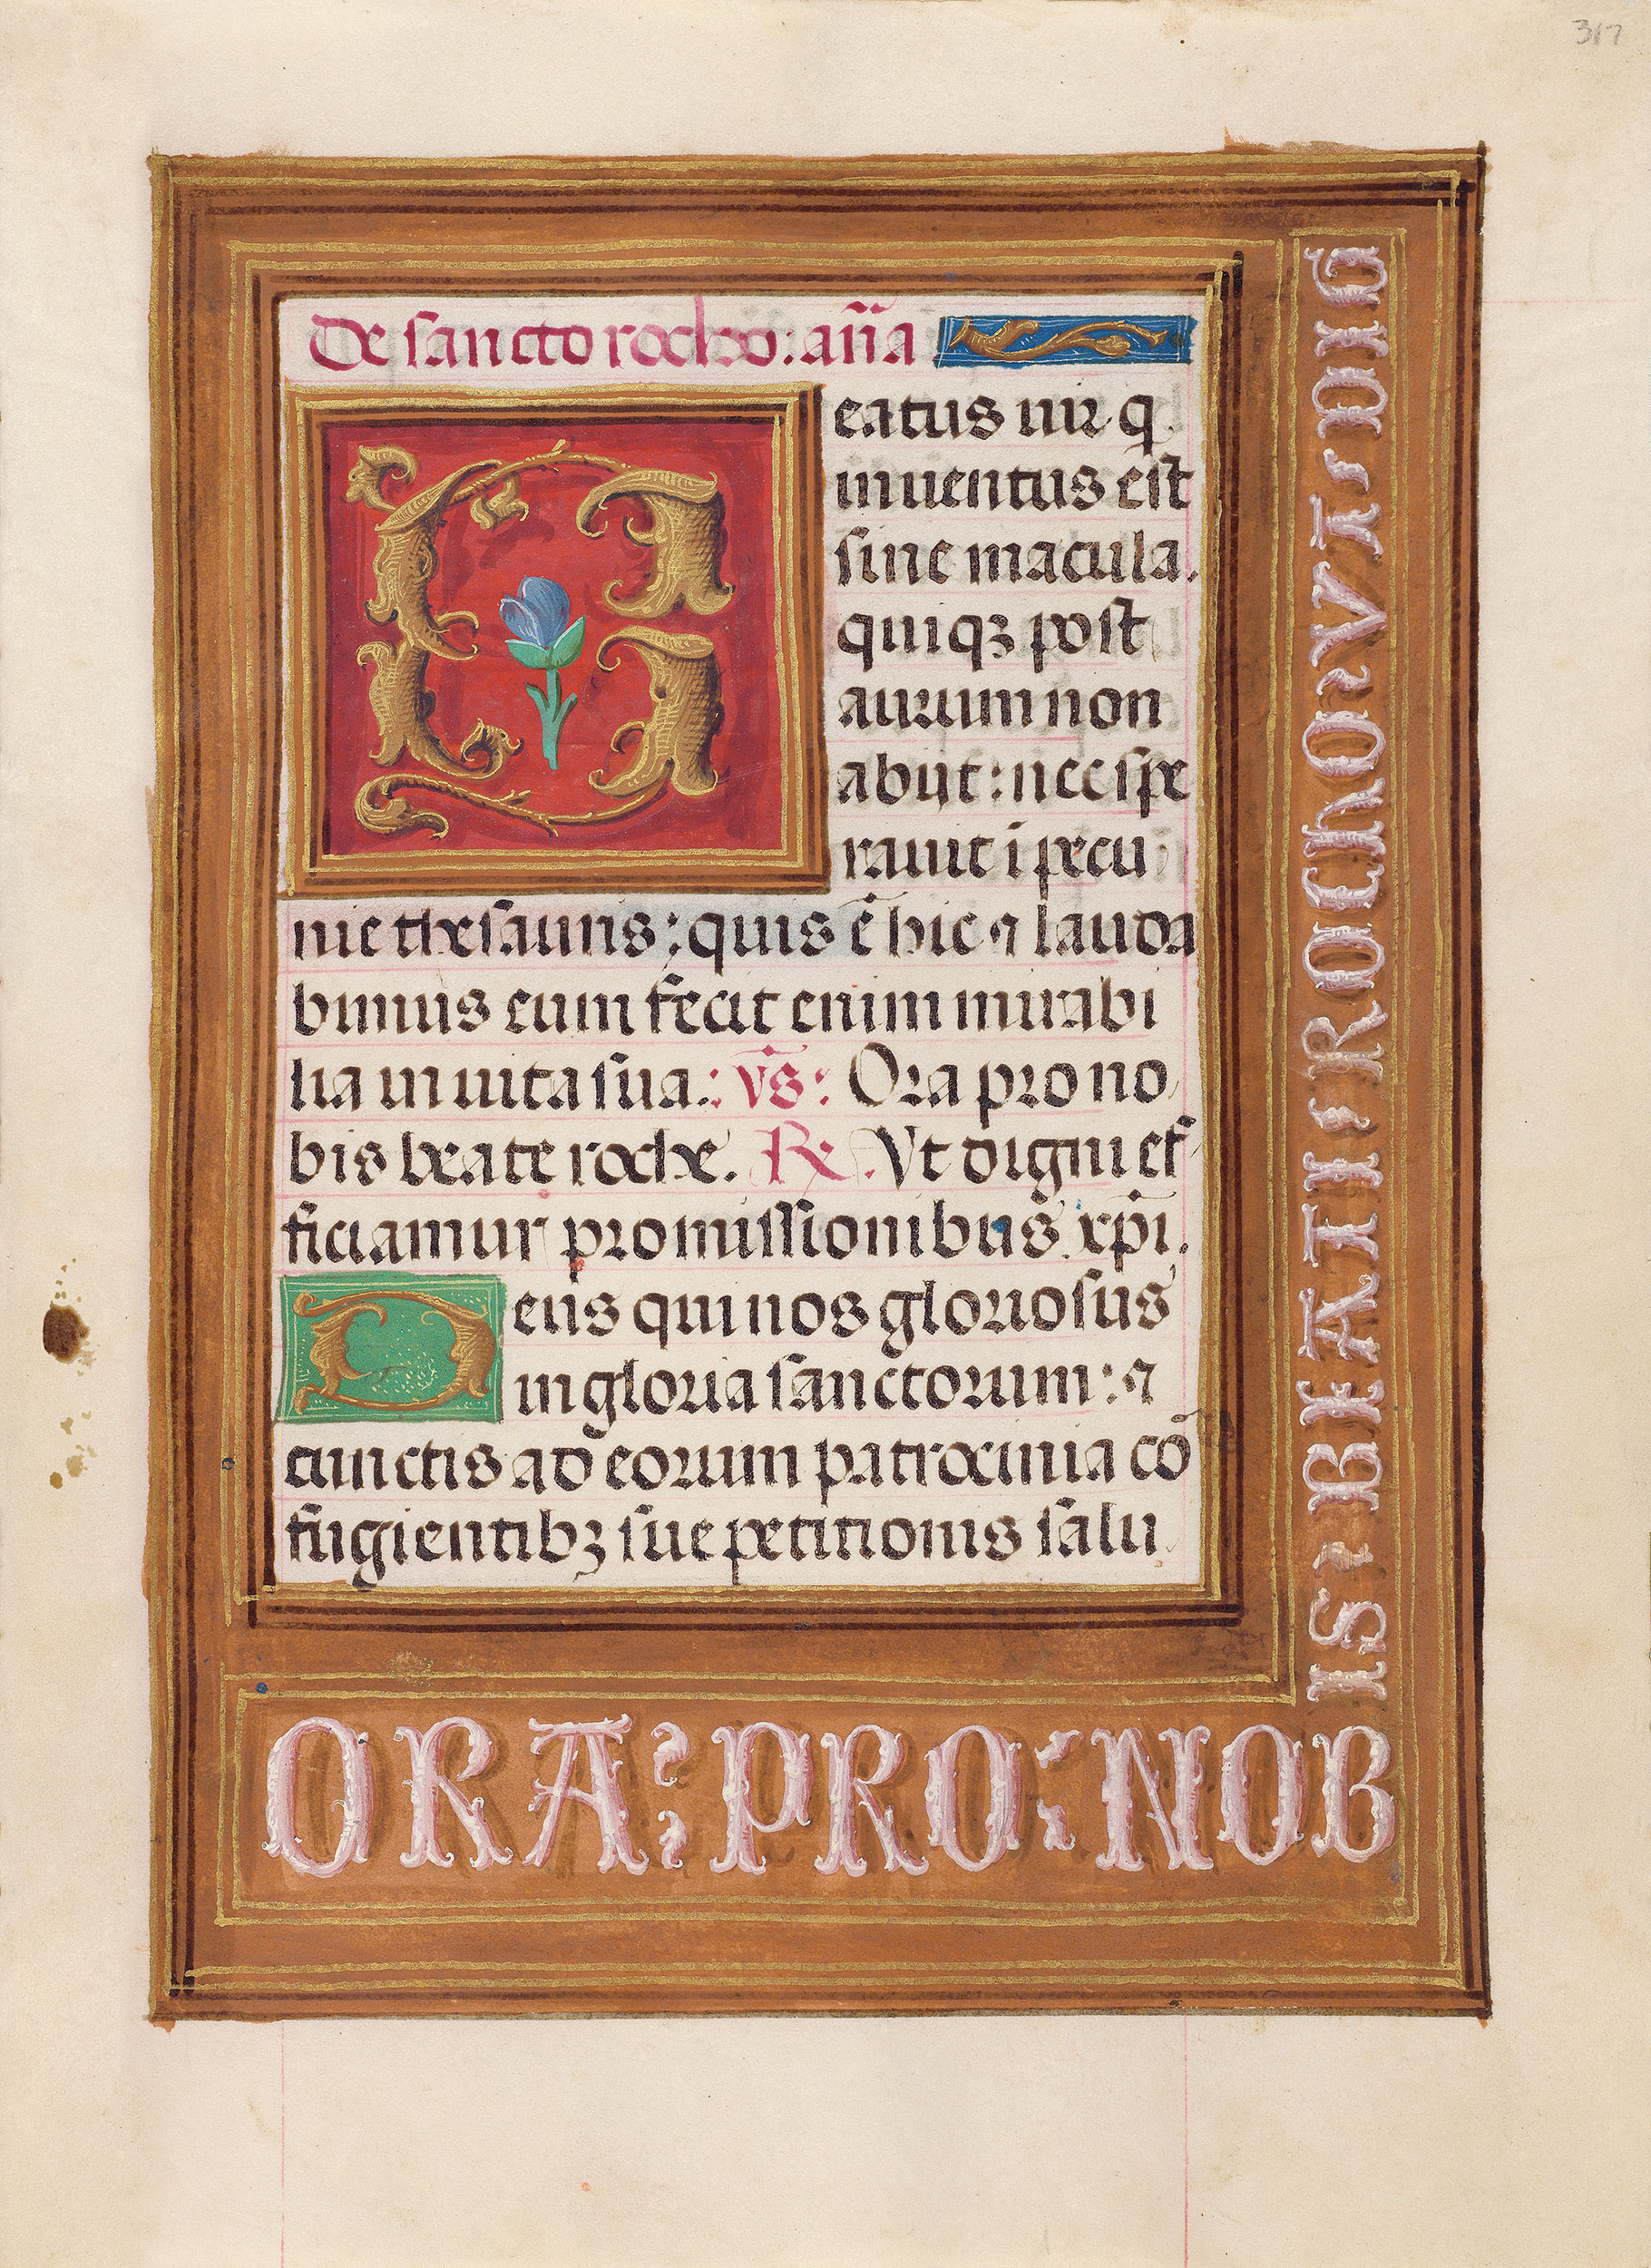 317
De sancto rocho: an̄a
Beatus uir q
inuentus est
sine macula.
quiqꝫ post
aurum non
abijt: nec spe
rauit ī pecu
nie thesauris: quis ē hic ⁊ lauda
bimus eum fecit enim mirabi
lia in uita sua.: v̄s: Ora pro no
bis beate roche. ℞. Vt digni ef
ficiamur promissionibus xp̄i.
Deus qui nos gloriosus
in gloria sanctorum: ⁊
cunctis ad eorum patrocinia cō
fugientibꝫ sue petitionis salu
ORA: PRO: NOB
IS BEATI ROCHO VT DIG